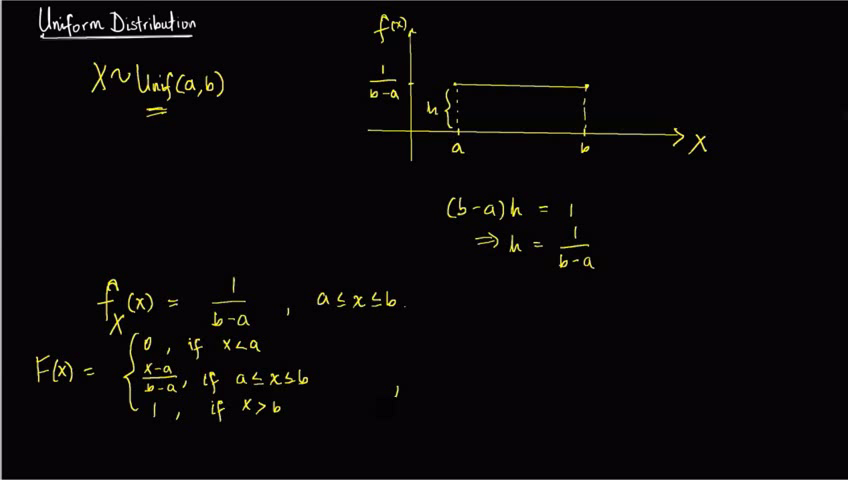 Uniform Distribution
X ~ Unif(a,b)
f(x)
1/(b-a)
h {
a b X
(b-a)h = 1
⇒ h = 1/(b-a)
f_X(x) = 1/(b-a) , a ≤ x ≤ b.
F(x) = { 0 , if x < a
(x-a)/(b-a) , if a ≤ x ≤ b ,
1 , if x > b